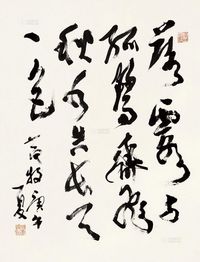 落霞与
孤鹜齊飛
秋水共長天
一色
庚午
夏